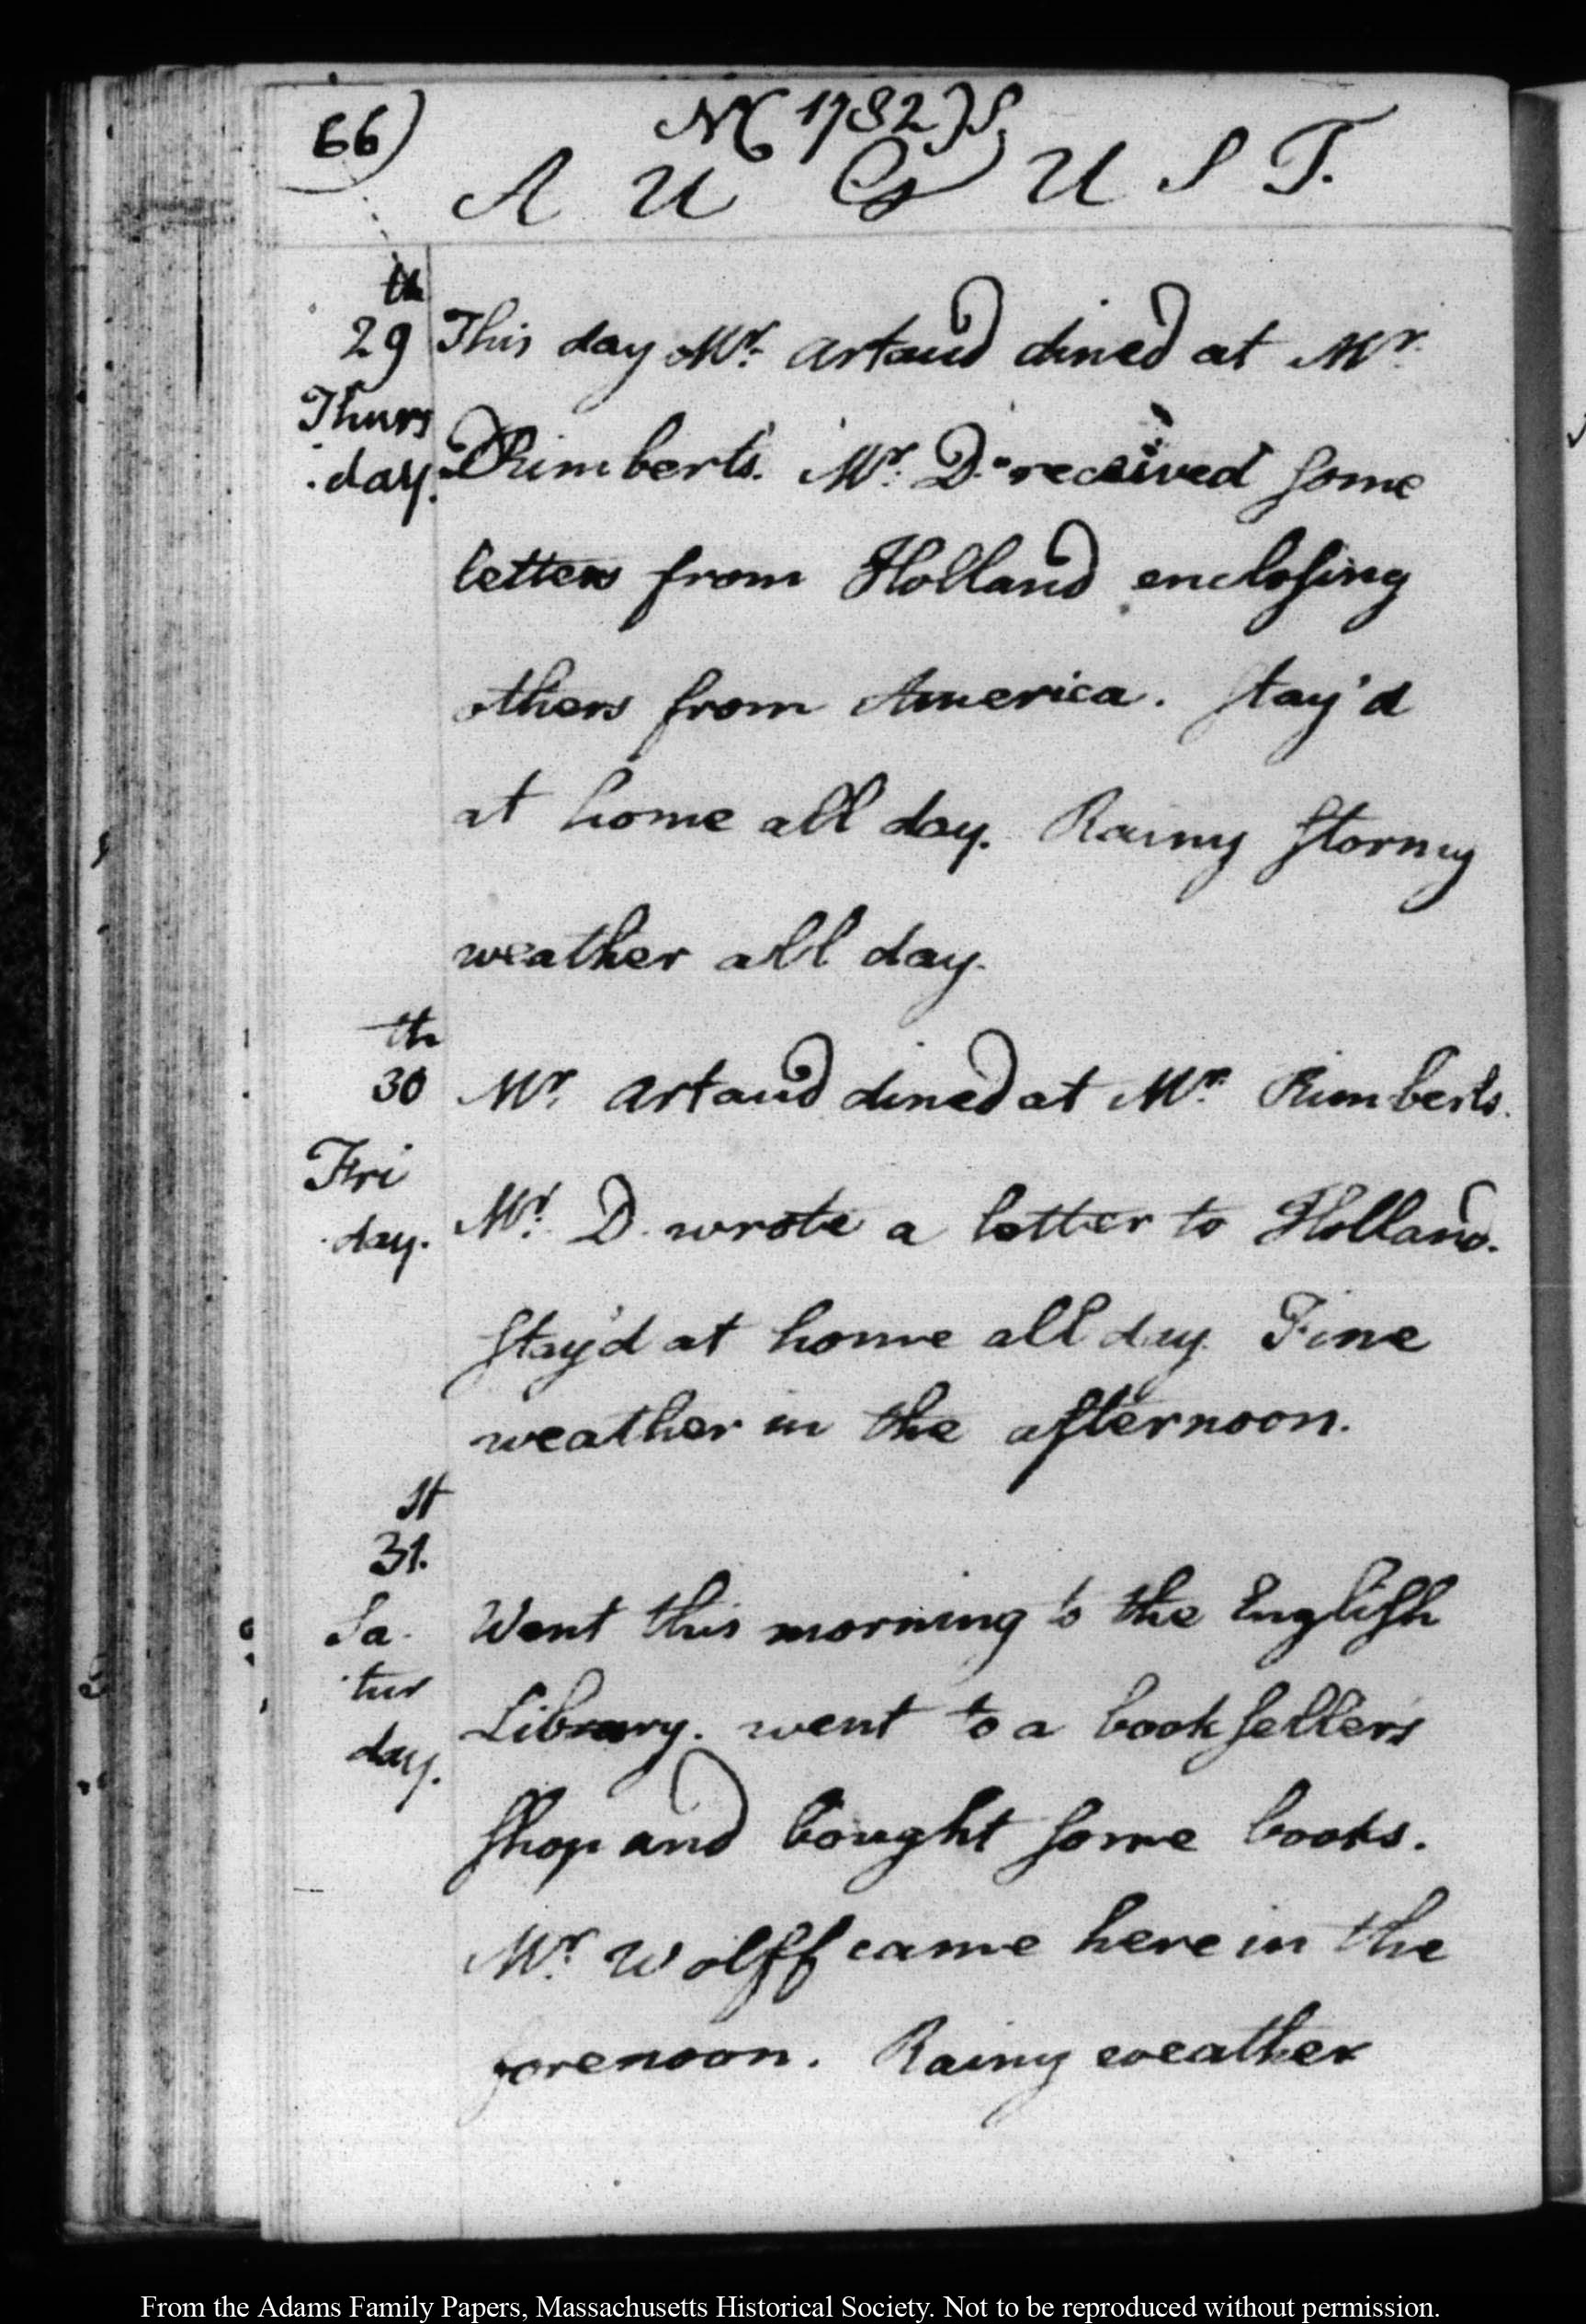 66)
N( 1782 )S.
A U G U S T.
th
29 This day Mr. Artaud dined at Mr.
Thurs
day. Rimberts. Mr. D. received some
letters from Holland enclosing
others from America. Stay'd
at home all day. Rainy stormy
weather all day.
th
30 Mr. Artaud dined at Mr. Rimberts.
Fri
day. Mr. D. wrote a letter to Holland.
Stay'd at home all day. Fine
weather in the afternoon.
st
31.
Sa- Went this morning to the English
tur
Library. went to a booksellers
day.
shop and bought some books.
Mr. Wolff came here in the
forenoon. Rainy weather
From the Adams Family Papers, Massachusetts Historical Society. Not to be reproduced without permission.